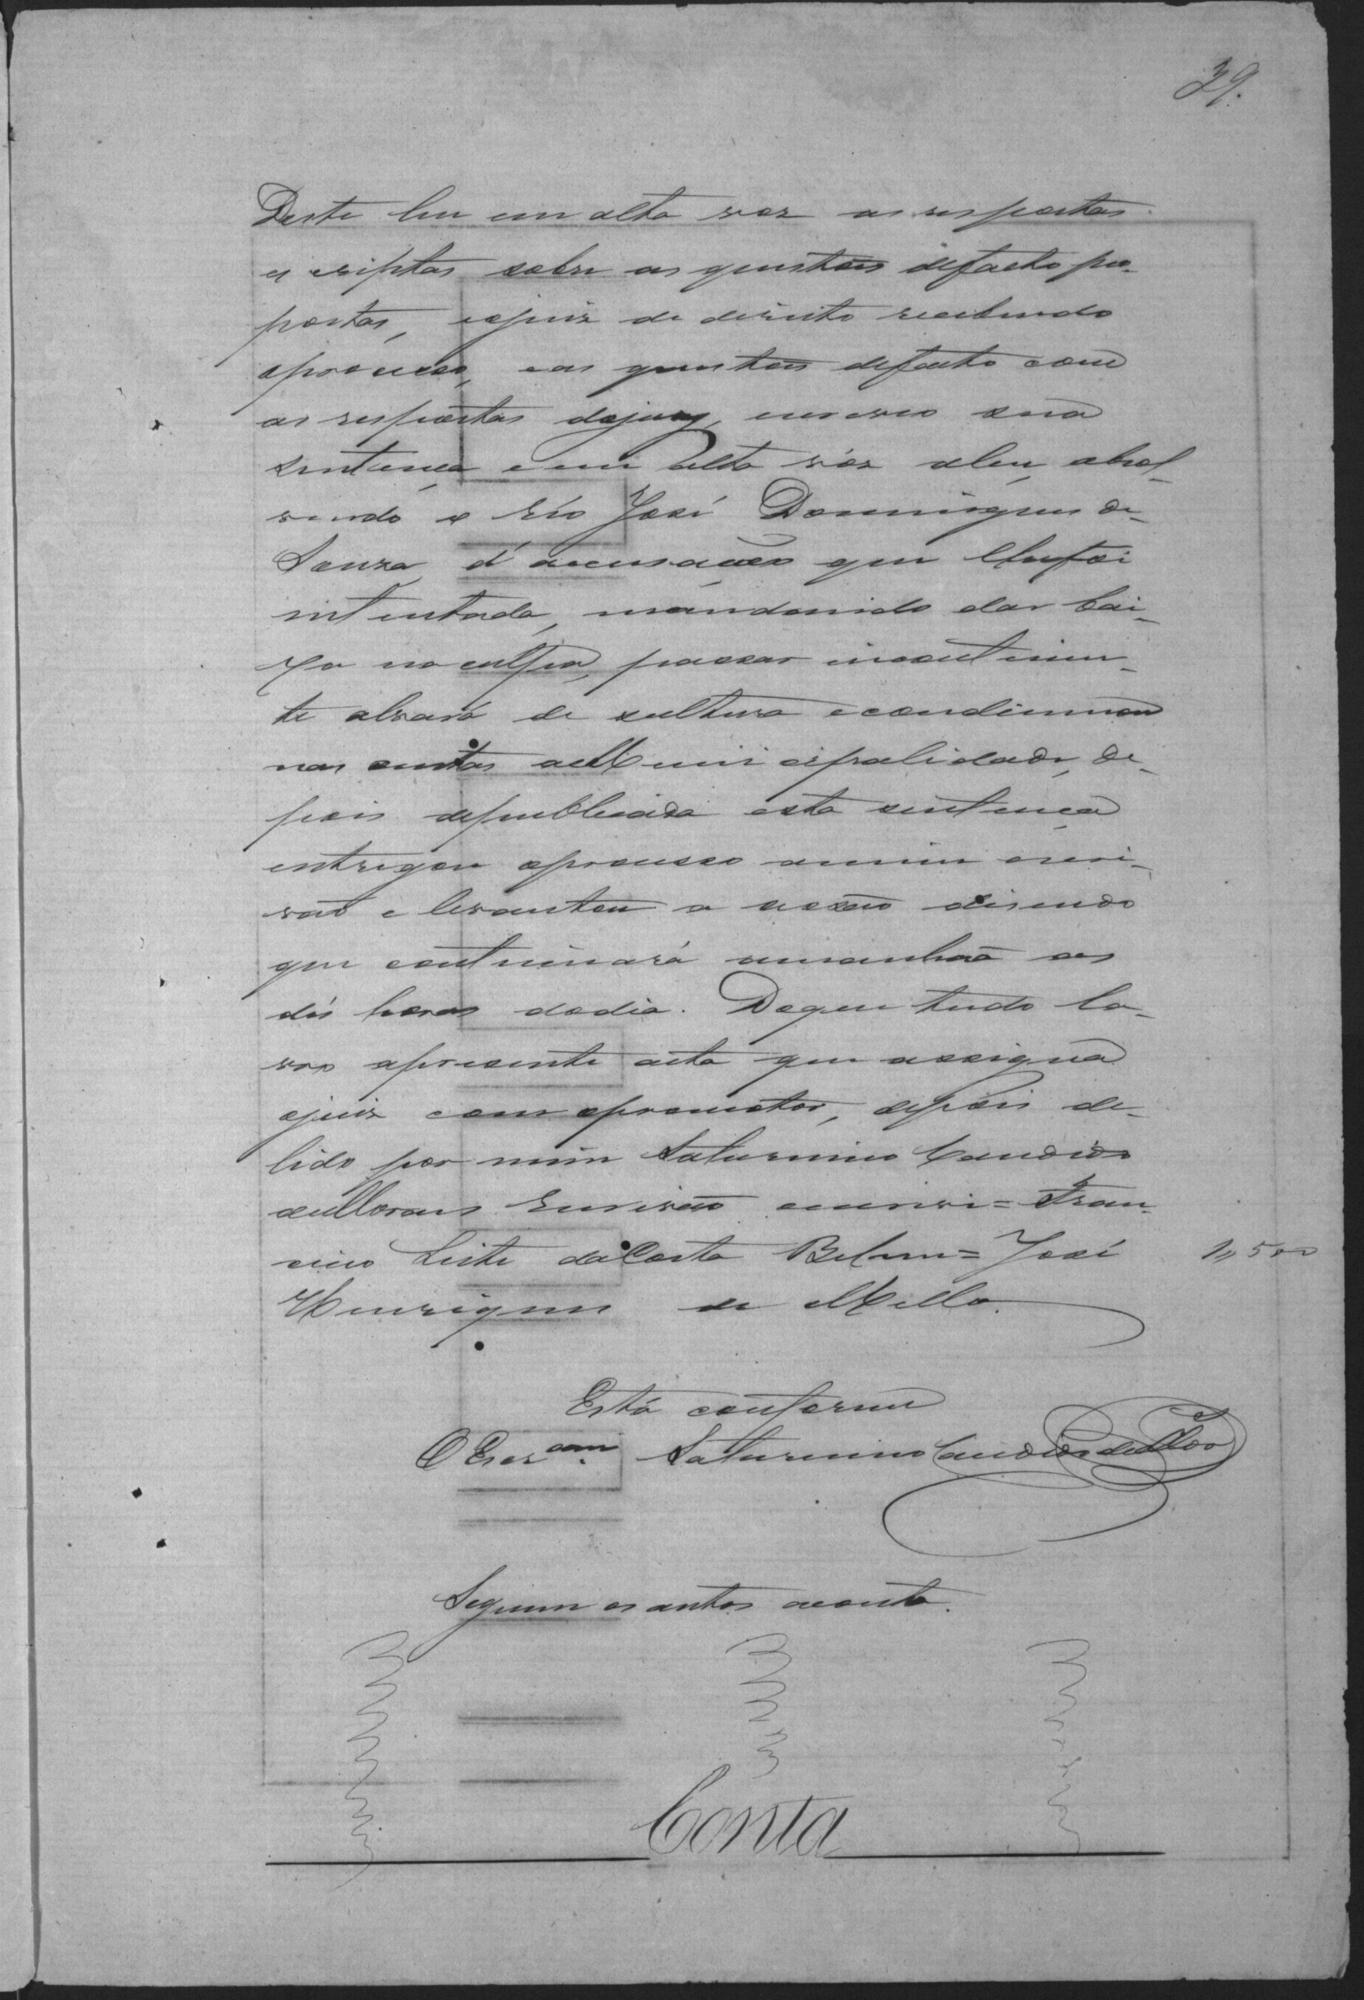 39.
Deste leu em alta voz as respostas
escriptas sobre as questões defacto pro-
postas, ojuiz de direito recebendo
oprocesso, eas questões defacto com
as respostas dojury, escreveo sua
sentença, e em alta vóz aleu, absol-
vendo o réo José Domingues de
Souza, d'accusacão que lhefoi
intentada, mandando dar bai-
xa na culpa, passar incontinen-
te alvará de soltura econdemnou
nas custas aMunicipalidade, de-
pois depublicada esta sentença
entregou oprocesso amim escri-
vão e levantou a secão disendo
que continuará amanhaã as
dés horas dodia. Doque tudo la-
vro apresente acta que assigna
ojuiz com opromotor, depois de
lido por mim Saturnino Candido
deMoraes Escrivão escrivi = Fran-
cisco Leite daCosta Belem = José 1,,500
Henriques de Mello.
Está conforme
O Escr.am Saturnino Candido deMor
Seguem os autos aconta.
Conta